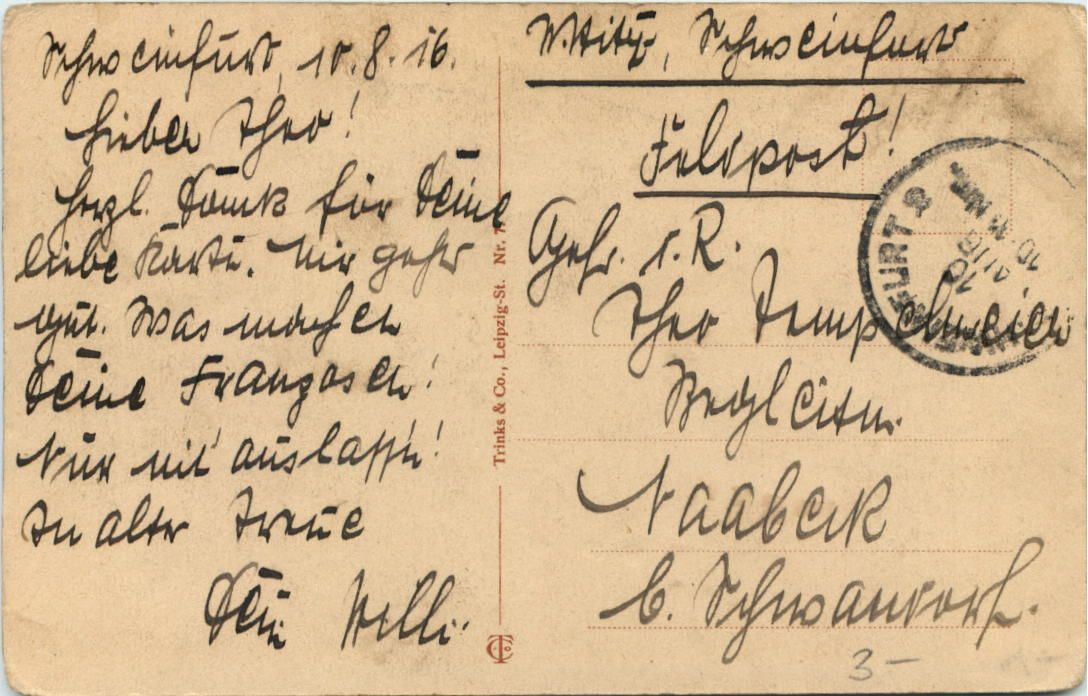 Schweinfurt, 10.8.16.
Lieber Theo!
Herzl. Dank für Deine
liebe Karte. Mir geht's
gut. Was machen
Deine Franzosen!
Nur nit auslassen!
In alter Treue
Dein Willi.
Trinks & Co., Leipzig-St. Nr. 7
Schweinfurt
Feldpost!
Gefr. d. R.
Theo
Naabeck
b. Schwandorf.
FURT 2
10
AUG
3-